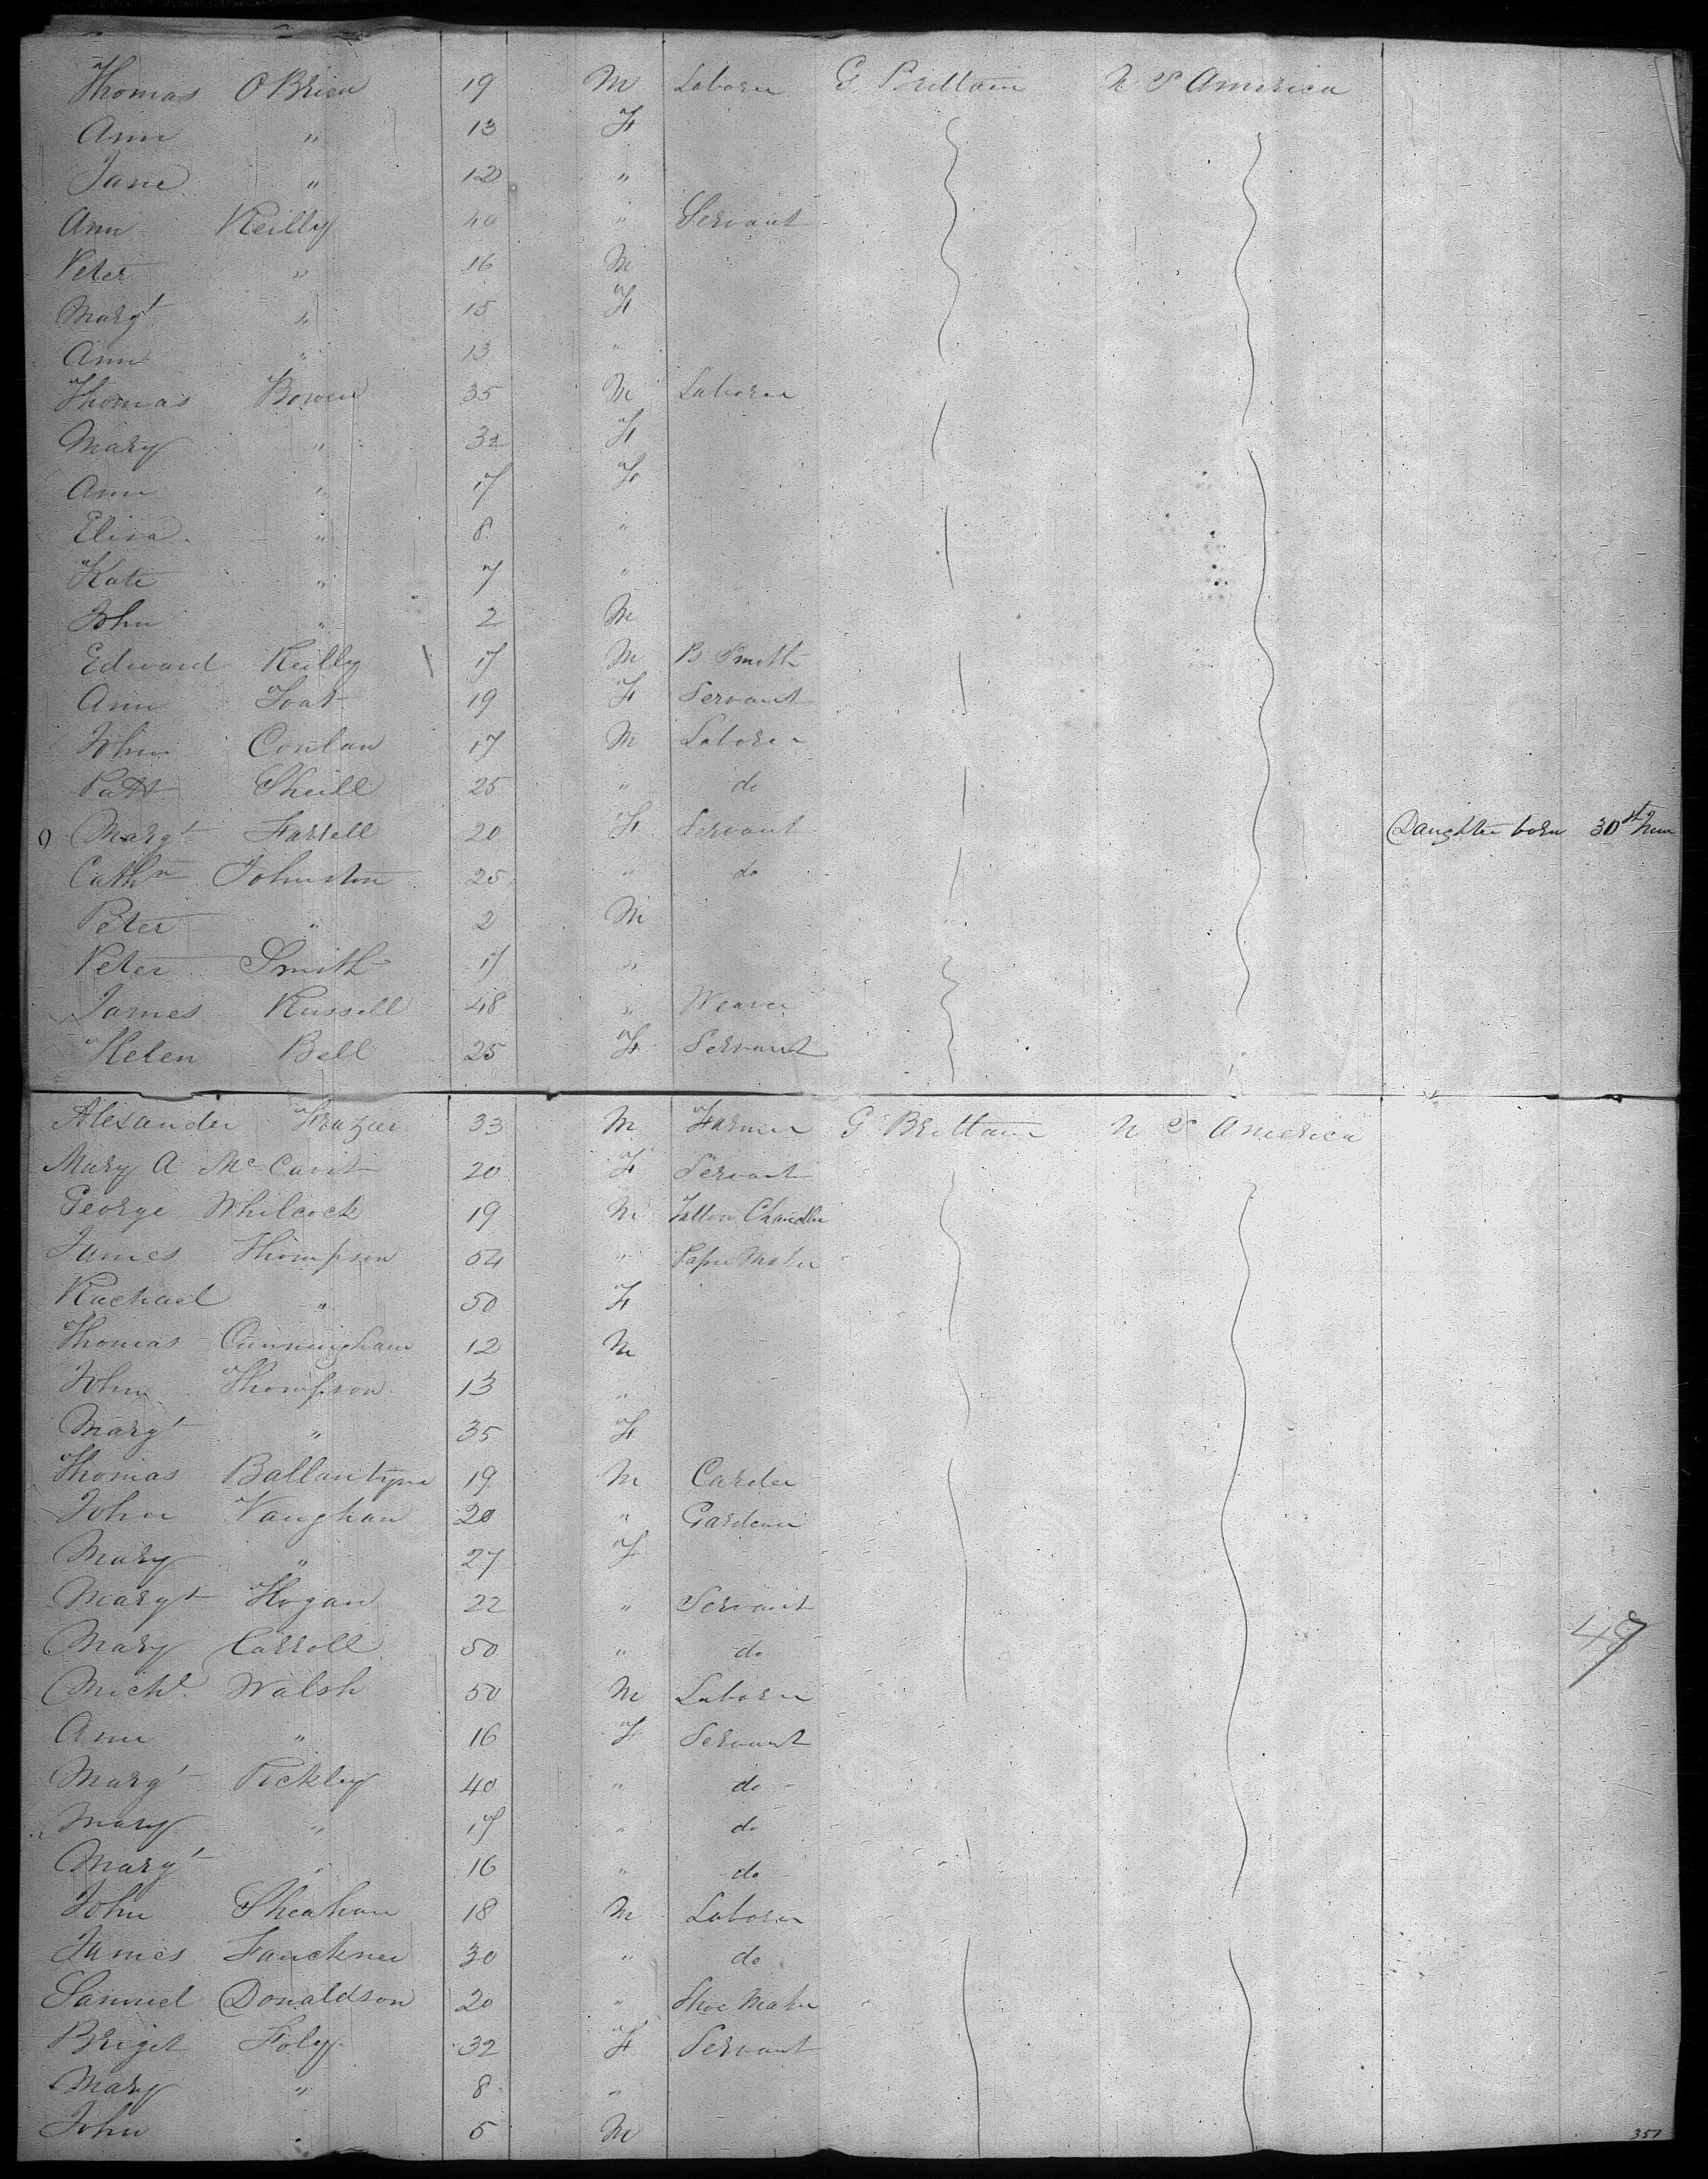 Thomas OBrien 19 M Laborer G. Brittain U S America
Ann " 13 F
Jane " 12 "
Ann Reilly 40 " Servant
Peter " 16 M
Margt " 15 F
Ann " 13 "
Thomas Bowen 35 M Laborer
Mary " 32 F
Ann " 17 F
Eliza " 8 "
Kate " 7 "
John " 2 M
Edward Reilly 17 M B Smith
Ann 19 F Servant
John Conlan 17 M Laborer
Patt Sheill 25 " do
Margt Farrell 20 F Servant Daughter born 30th
Cathn Johnston 25 " do
Peter " 2 M
Peter Smith 17 "
James Russell 48 " Weaver
Helen Bell 25 F Servant
Alexander Frazer 33 M Farmer G Brittain U S America
Mary A 20 F Servant
George Whilcock 19 M Tallow Chandler
James Thompson 54 " Paper Maker
Rachael " 50 F
Thomas Cunningham 12 M
John Thompson 13 "
Margt " 35 F
Thomas Ballantyne 19 M Carder
John Vaughan 20 " Gardener
Mary " 27 F
Margt Hogan 22 " Servant
Mary Carroll 50 " do
Michl Walsh 50 M Laborer
49
Ann " 16 F Servant
Margt Pickley 40 " do
Mary " 17 " do
Margt " 16 " do
John Sheahan 18 M Laborer
James Fauckner 30 " do
Samuel Donaldson 20 " Shoe Maker
Briget Foley 32 F Servant
Mary " 8 "
John " 5 M
351